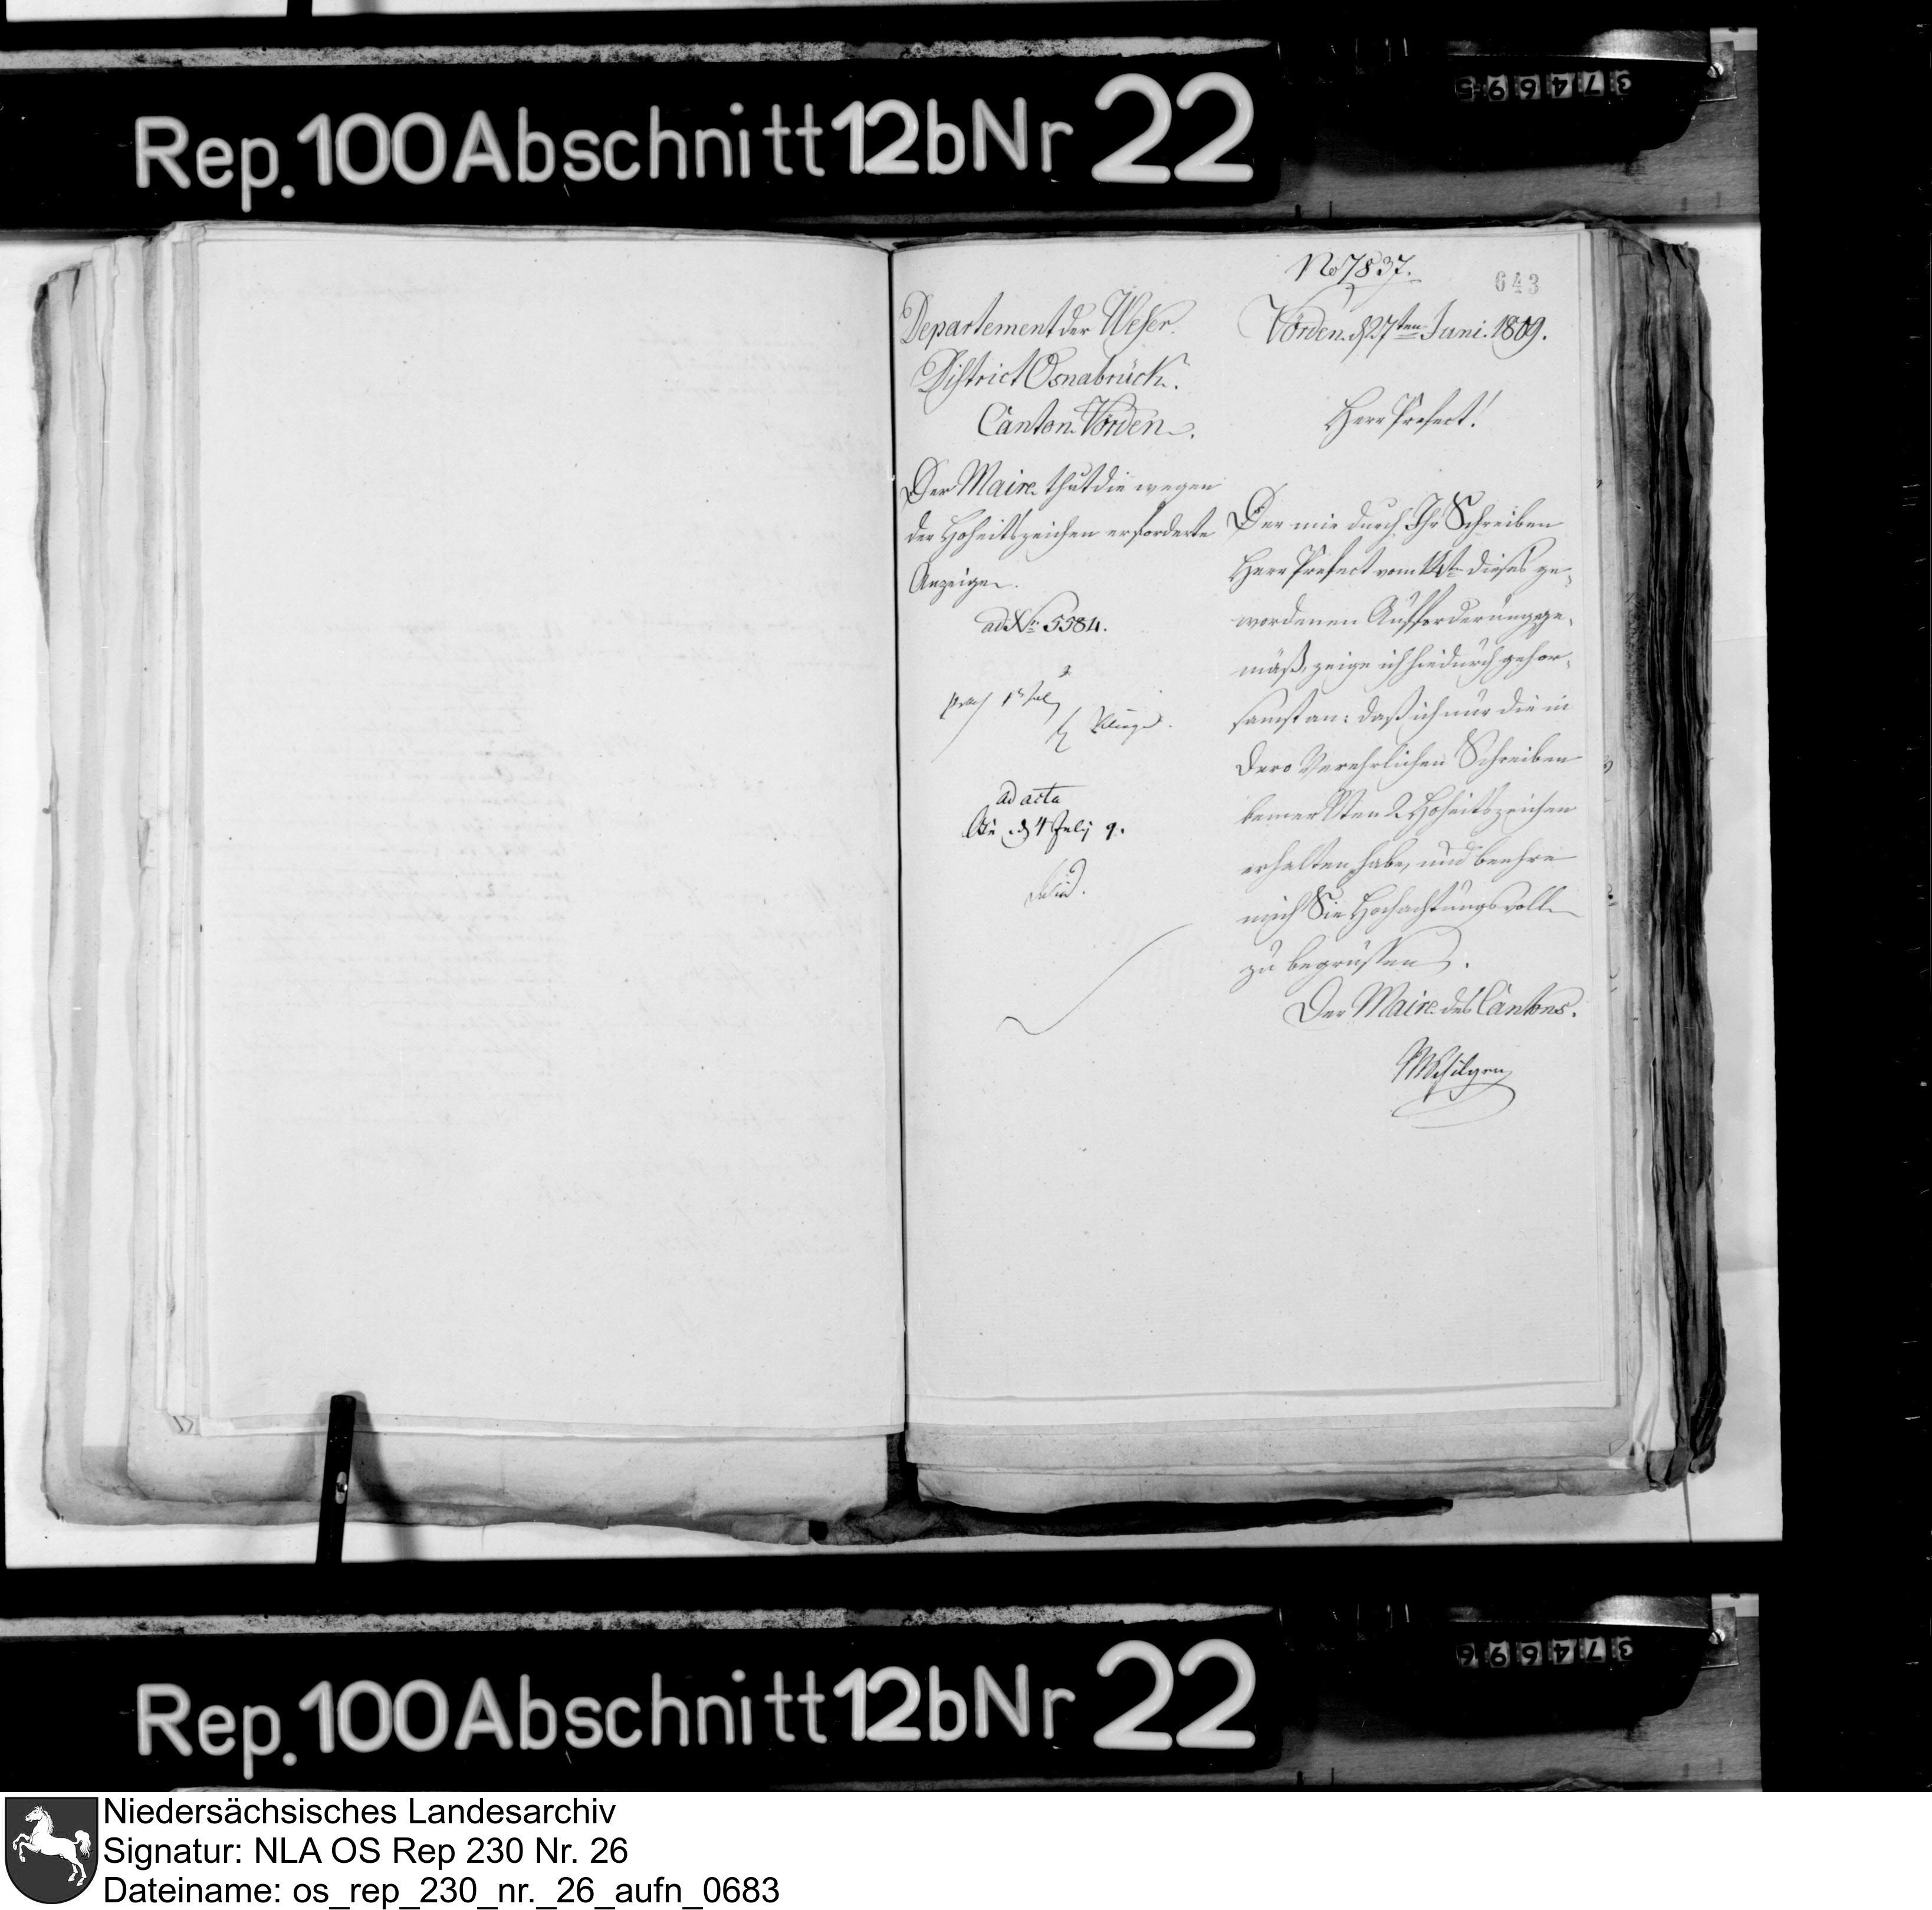 Rep. 100 Abschnitt 12b Nr 22
374695
No 7837.
643
Departement der Weser.
District Osnabrück.
Canton Vörden.
Vörden d 27ten Juni. 1809.
Herr Prefect!
Der Maire thut die wegen
der Hoheitszeichen erforderte
Anzeige.
ad Nr. 5584.
ad acta
d 4 July 9.
Der mir durch Ihr Schreiben
Herr Prefect vom 14t dieses ge-
wordenen Aufforderung ge-
mäß, zeige ich hiedurch gehor-
samst an: daß ich nur die in
Dero Verehrlichen Schreiben
bemerkten 2 Hoheitszeichen
erhalten habe, und beehre
mich Sie Hochachtungsvoll
zu begrüssen.
Der Maire des Cantons.
Rep. 100 Abschnitt 12b Nr 22
374696
Niedersächsisches Landesarchiv
Signatur: NLA OS Rep 230 Nr. 26
Dateiname: os_rep_230_nr._26_aufn_0683